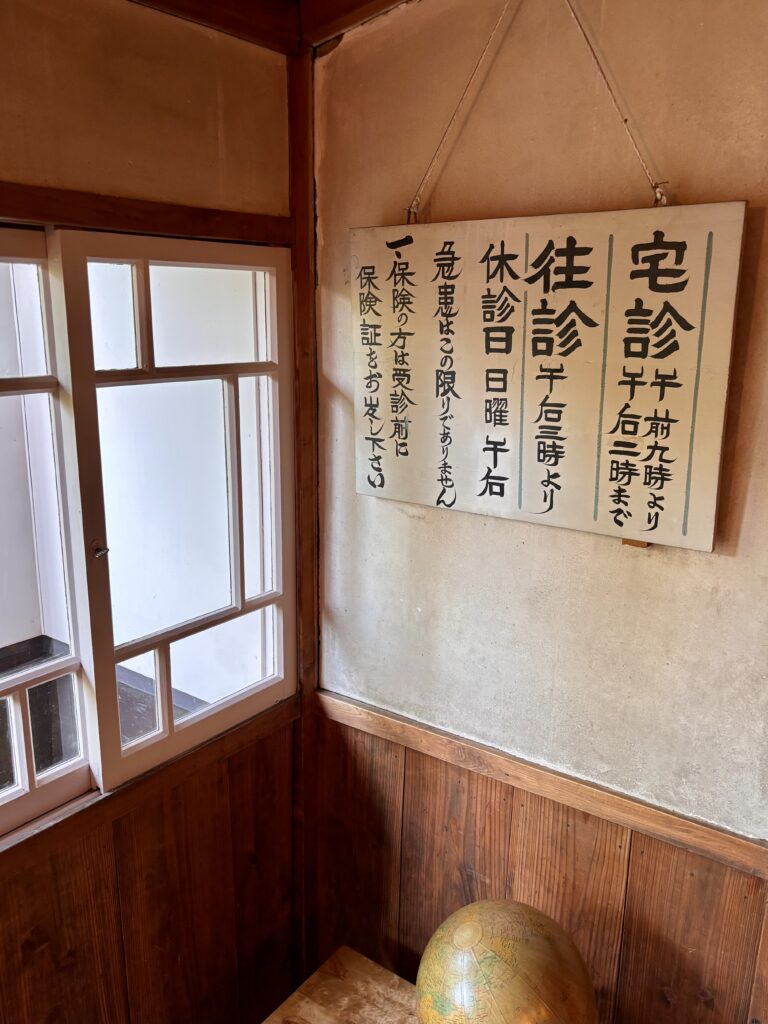 宅診
午前九時より
午后二時まで
往診
午后三時より
休診日 日曜 午后
急患はこの限りでありません
一、保険の方は受診前に
保険証をお出し下さい